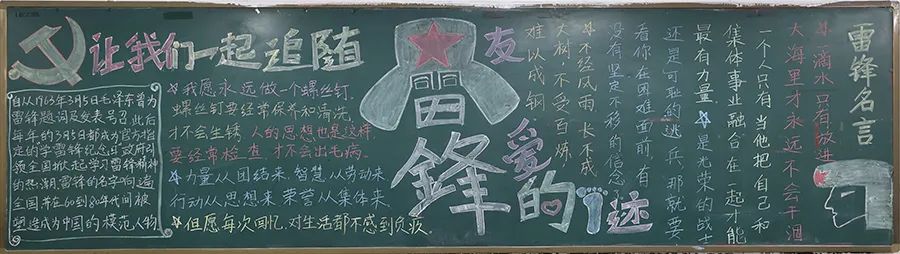 让我们一起追随
雷锋
友
爱的迹
自从1963年3月5日毛泽东曾为
雷锋题词及发表号召,此后
每年的3月5日都成为官方指
定的学雷锋纪念日,政府引
领全国掀起学习雷锋精神
的热潮.雷锋的名字响遍
全国,并在60到80年代间被
塑造成为中国的模范人物
☆我愿永远做一个螺丝钉.
螺丝钉要经常保养和清洗,
才不会生锈.人的思想也是这样,
要经常检查,才不会出毛病.
☆力量从团结来,智慧从劳动来
行动从思想来 荣誉从集体来.
☆但愿每次回忆,对生活都不感到负疚.
雷锋名言
☆一滴水只有放进
大海里才永远不会干涸
一个人只有当他把自己和
集体事业融合在一起才能
最有力量.☆是光荣的战士
还是可耻的逃兵,那就要
看你在困难面前有
没有坚定不移的信念
☆不经风雨,长不成
大树,不受百炼,
难以成钢